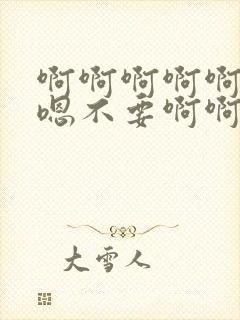 啊啊啊啊啊
嗯不要啊啊
大雪人